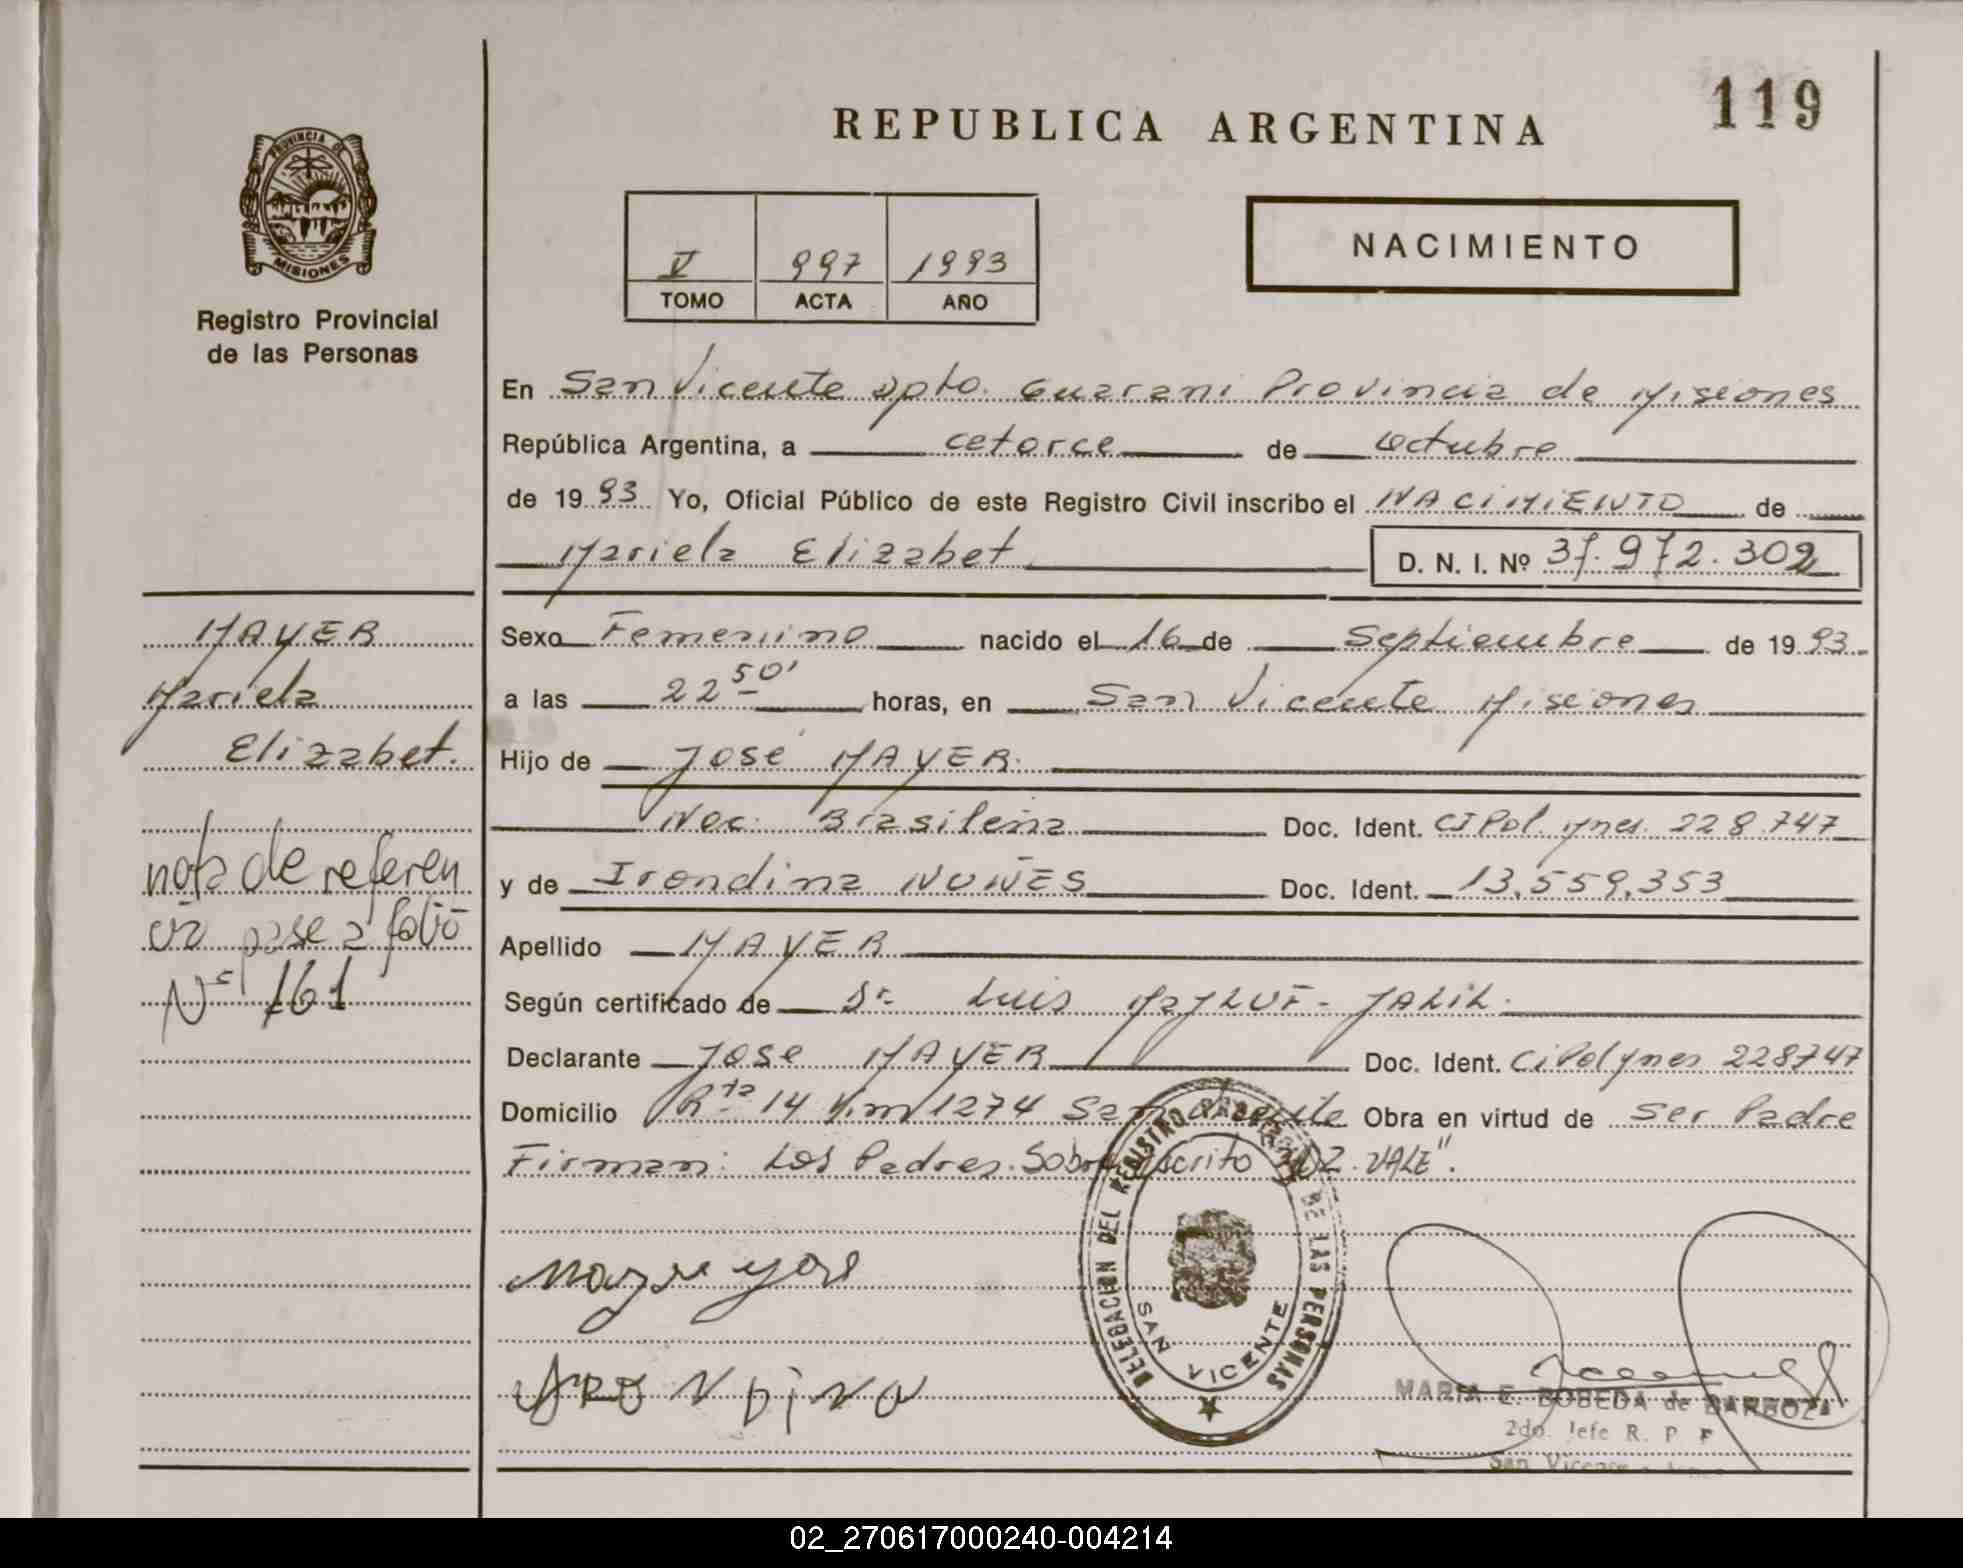 119
REPUBLICA ARGENTINA
PROVINCIA DE
MISIONES
Registro Provincial
de las Personas
V 997 1993
TOMO ACTA AÑO
NACIMIENTO
En San Vicente Dpto. Guarani Provincia de Misiones
República Argentina, a catorce de octubre
de 1993 Yo, Oficial Público de este Registro Civil inscribo el NACIMIENTO de
Mariela Elizabet D. N. I. Nº 37.972.302
MAYER
Mariela
Elizabet.
nota de referen
cia pase a folio
Nº 161
Sexo Femenino nacido el 16 de Septiembre de 1993
a las 22 50' horas, en San Vicente Misiones
Hijo de José MAYER.
Nac. Brasileña Doc. Ident. CI Pol. Mnes. 228.747
y de Irondina NUÑES Doc. Ident. 13.559.353
Apellido MAYER
Según certificado de Dr. Luis MAJLUF - JALIL.
Declarante Jose MAYER Doc. Ident. Ci Pol Mnes 228747
Domicilio Rta 14 Km 1274 San Vicente Obra en virtud de Ser Padre
Firman: Los Padres. Sobre escrito "02. VALE".
DELEGACION DEL REGISTRO PROVINCIAL DE LAS PERSONAS
SAN VICENTE
MARIA E. BOBEDA de BARBOZA
2do. Jefe R. P. P
San Vicente - Mnes
02_270617000240-004214